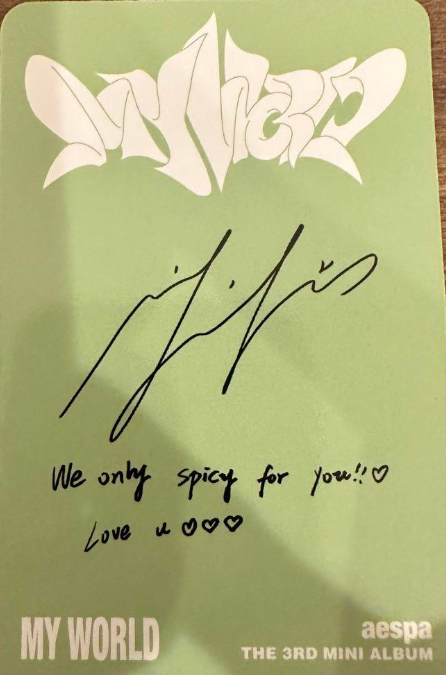 MY WORLD
We only spicy for you!!♡
Love u ♡♡♡
MY WORLD
aespa
THE 3RD MINI ALBUM